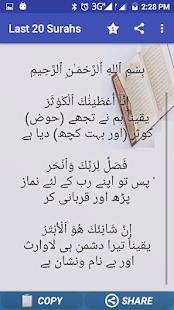 3G 2:28 PM
Last 20 Surahs
بِسْمِ ٱللَّهِ ٱلرَّحْمَـٰنِ ٱلرَّحِيمِ
إِنَّآ أَعْطَيْنَٰكَ ٱلْكَوْثَرَ
یقیناً ہم نے تجھے (حوض)
کوثر (اور بہت کچھ) دیا ہے
فَصَلِّ لِرَبِّكَ وَٱنْحَرْ
پس تو اپنے رب کے لئے نماز
پڑھ اور قربانی کر
إِنَّ شَانِئَكَ هُوَ ٱلْأَبْتَرُ
یقیناً تیرا دشمن ہی لاوارث
اور بے نام ونشان ہے
COPY SHARE